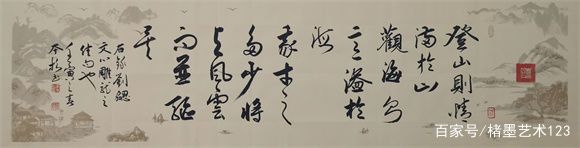 登山則情
满於山
觀海则
意溢於
海
我才之
多少將
与風雲
而並驅
矣
右録劉勰
文心雕龍之
佳句也
壬寅之春
百家号/楮墨艺术123